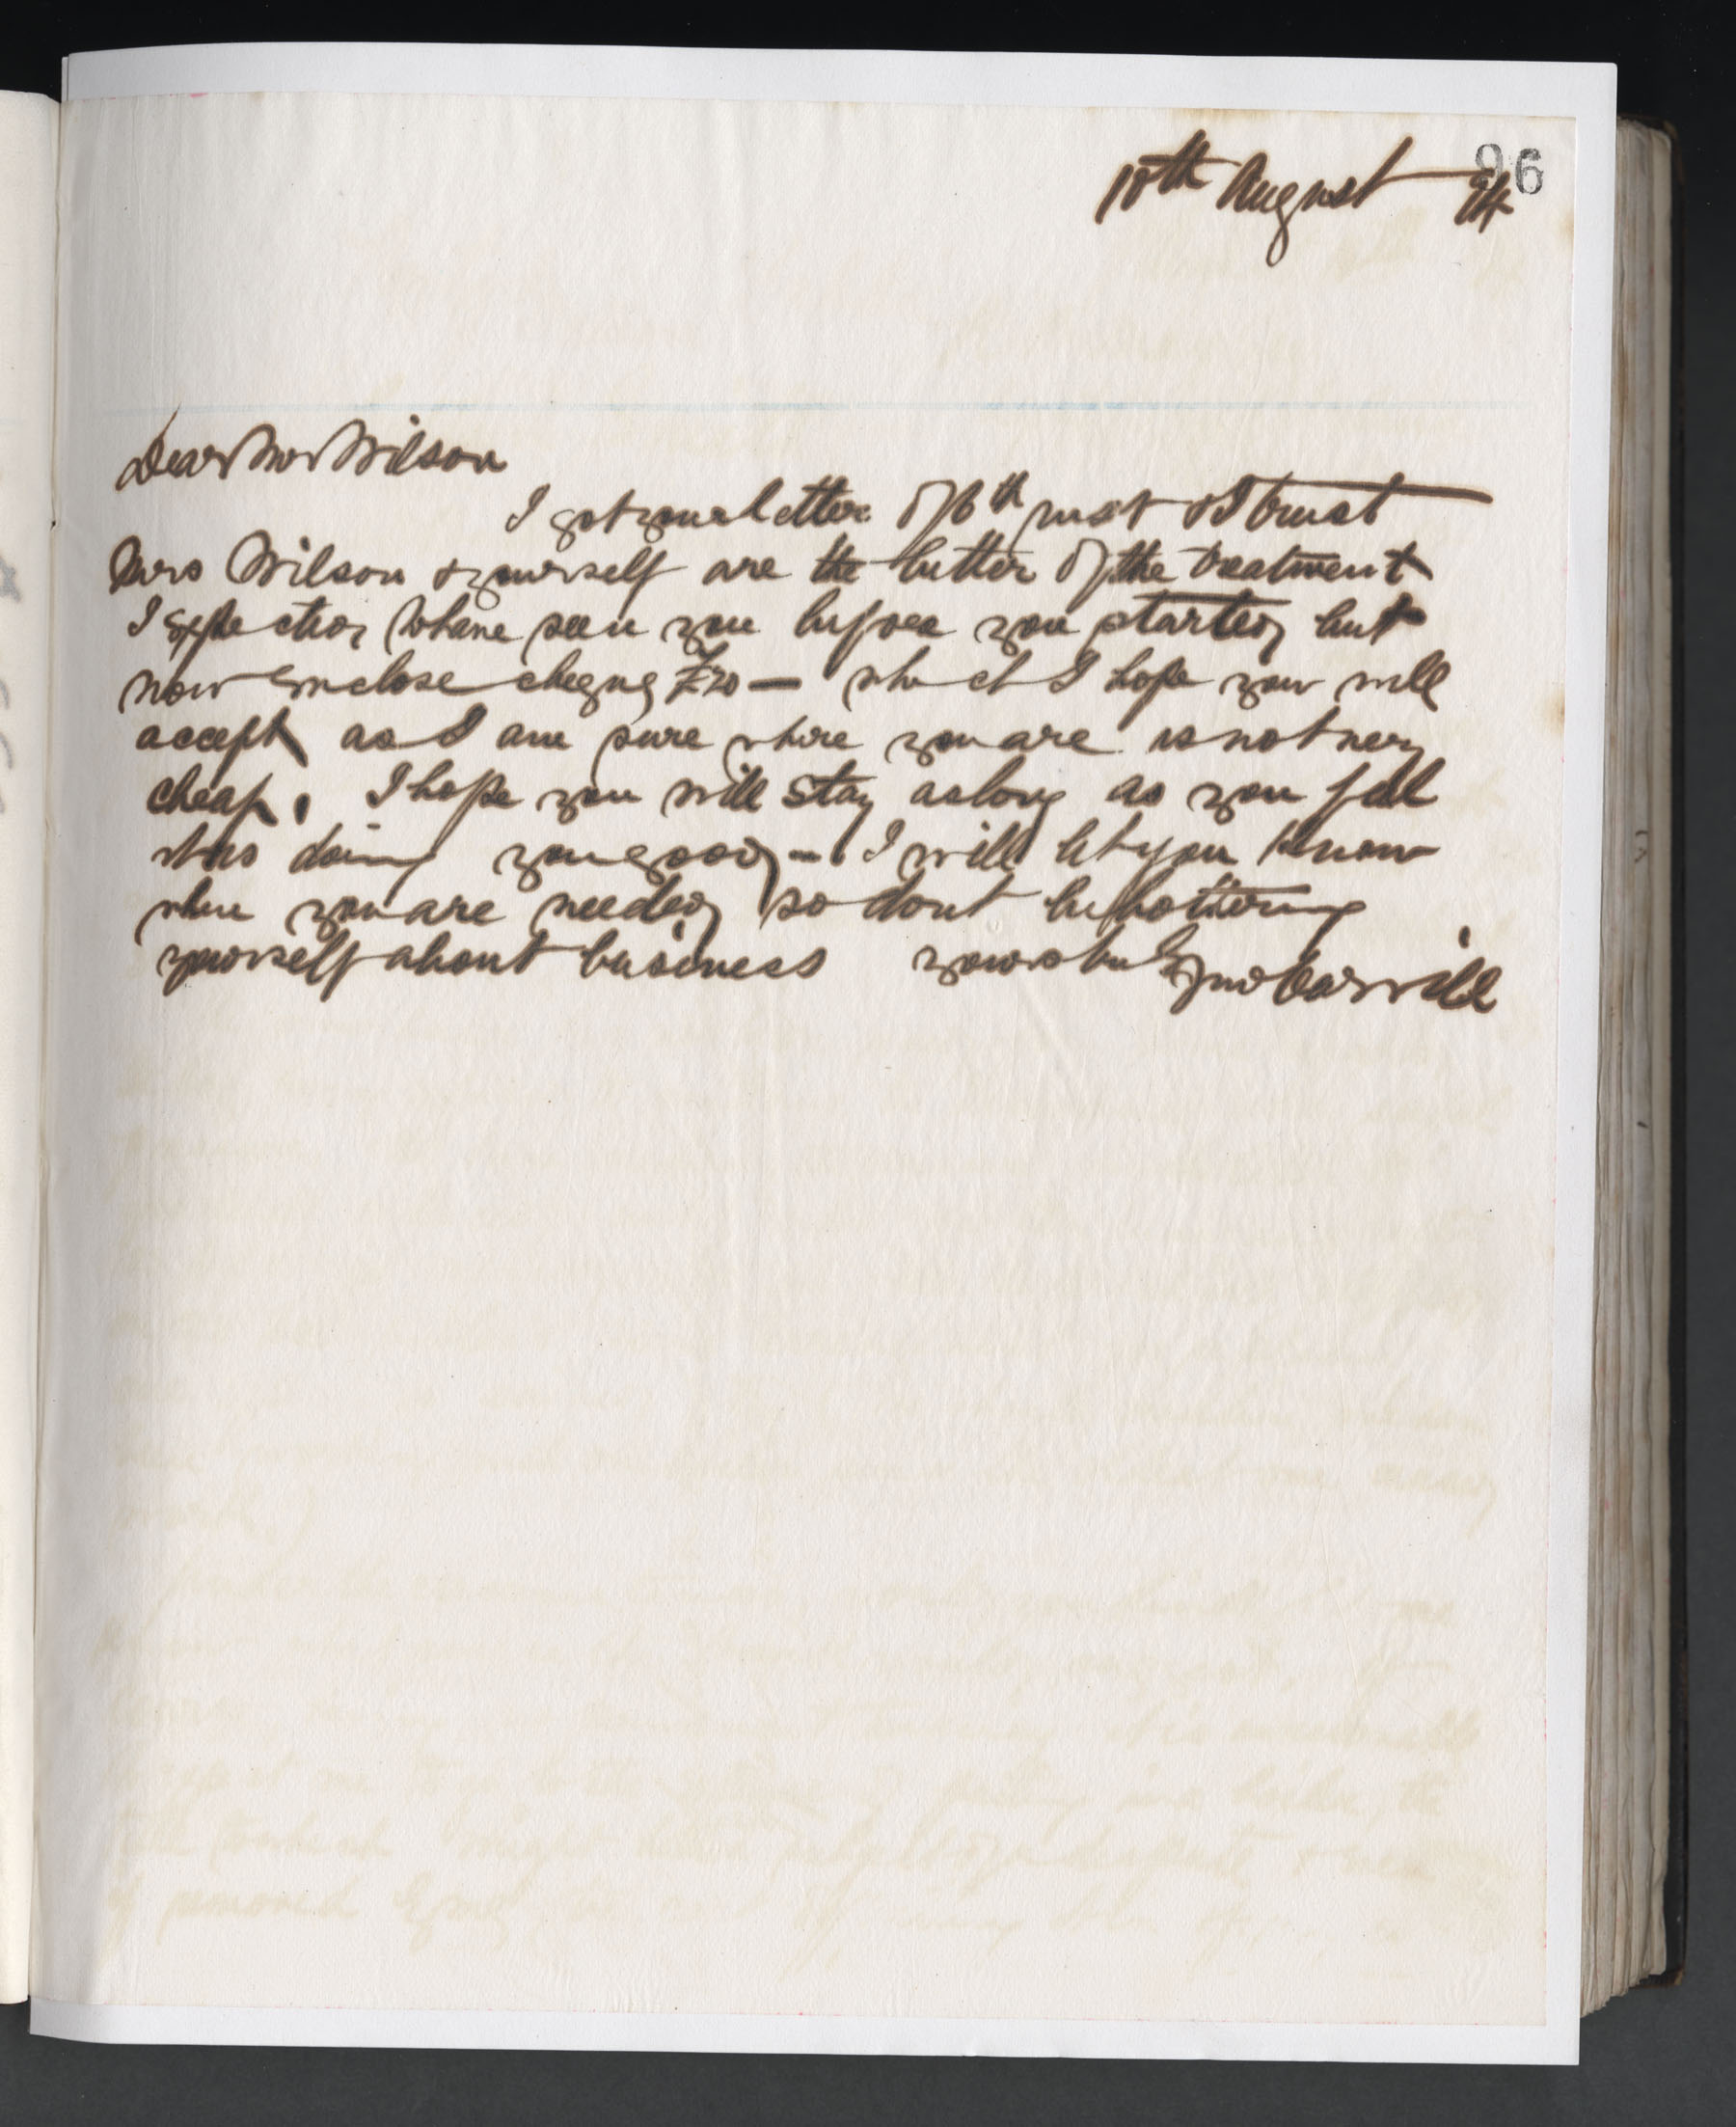 96
10th August 94
Dear Mr Wilson
I got your letter of 6th inst & I trust
Mrs Wilson & yourself are the better of the treatment
I expected to have seen you before you started but
now enclose cheque £20 — which I hope you will
accept as I am sure where you are is not very
cheap. I hope you will stay as long as you feel
its doing you good — I will let you know
when you are needed so dont be bothering
yourself about business yours truly